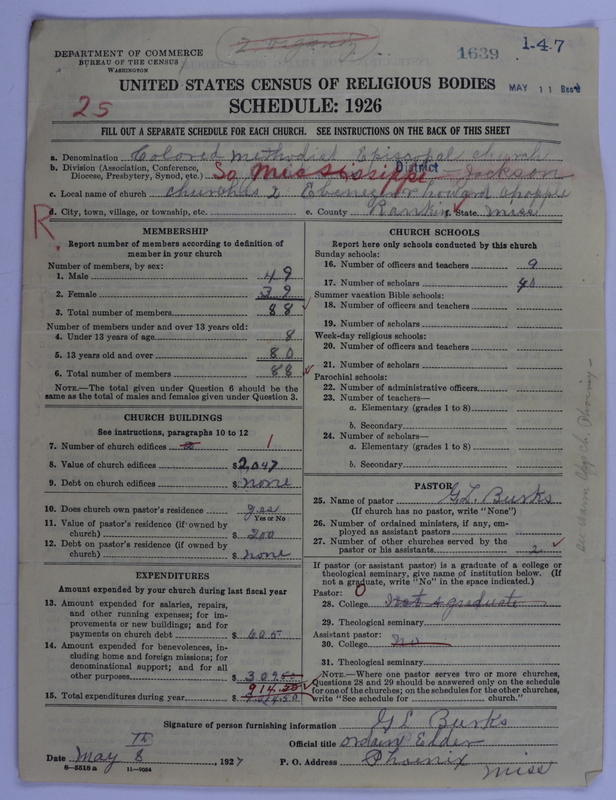 1-4-7
1639
DEPARTMENT OF COMMERCE
BUREAU OF THE CENSUS
WASHINGTON
UNITED STATES CENSUS OF RELIGIOUS BODIES
MAY 11
SCHEDULE: 1926
25
FILL OUT A SEPARATE SCHEDULE FOR EACH CHURCH. SEE INSTRUCTIONS ON THE BACK OF THIS SHEET
a. Denomination Colored Methodist Episcopal Church
b. Division (Association, Conference, Diocese, Presbytery, Synod, etc.) So Mississippi District Jackson
c. Local name of church Ebenezer
d. City, town, village, or township, etc. e. County Rankin f. State Miss
R
MEMBERSHIP
Report number of members according to definition of
member in your church
Number of members, by sex:
1. Male 49
2. Female 39
3. Total number of members 88
Number of members under and over 13 years old:
4. Under 13 years of age 8
5. 13 years old and over 80
6. Total number of members 88
NOTE.—The total given under Question 6 should be the
same as the total of males and females given under Question 3.
CHURCH BUILDINGS
See instructions, paragraphs 10 to 12
7. Number of church edifices 1
8. Value of church edifices $2,047
9. Debt on church edifices $ none
10. Does church own pastor's residence? yes
Yes or No
11. Value of pastor's residence (if owned by
church) $ 200
12. Debt on pastor's residence (if owned by
church) $ none
EXPENDITURES
Amount expended by your church during last fiscal year
13. Amount expended for salaries, repairs,
and other running expenses; for im-
provements or new buildings; and for
payments on church debt $ 605
14. Amount expended for benevolences, in-
cluding home and foreign missions; for
denominational support; and for all
other purposes $ 309
914.50
15. Total expenditures during year $
CHURCH SCHOOLS
Report here only schools conducted by this church
Sunday schools:
16. Number of officers and teachers 9
17. Number of scholars 40
Summer vacation Bible schools:
18. Number of officers and teachers
19. Number of scholars
Week-day religious schools:
20. Number of officers and teachers
21. Number of scholars
Parochial schools:
22. Number of administrative officers
23. Number of teachers—
a. Elementary (grades 1 to 8)
b. Secondary
24. Number of scholars—
a. Elementary (grades 1 to 8)
b. Secondary
PASTOR
25. Name of pastor G L. Burks
(If church has no pastor, write "None")
26. Number of ordained ministers, if any, em-
ployed as assistant pastors
27. Number of other churches served by the
pastor or his assistants 2
If pastor (or assistant pastor) is a graduate of a college or
theological seminary, give name of institution below. (If
not a graduate, write "No" in the space indicated.)
Pastor: 0
28. College Not a graduate
29. Theological seminary
Assistant pastor:
30. College No
31. Theological seminary
NOTE.—Where one pastor serves two or more churches,
Questions 28 and 29 should be answered only on the schedule
for one of the churches; on the schedules for the other churches,
write "See schedule for church."
Signature of person furnishing information G L Burks
Official title Ordain Elder
Date May 8 th, 1927 P. O. Address Phoenix
Miss
8—5518a 11—9034